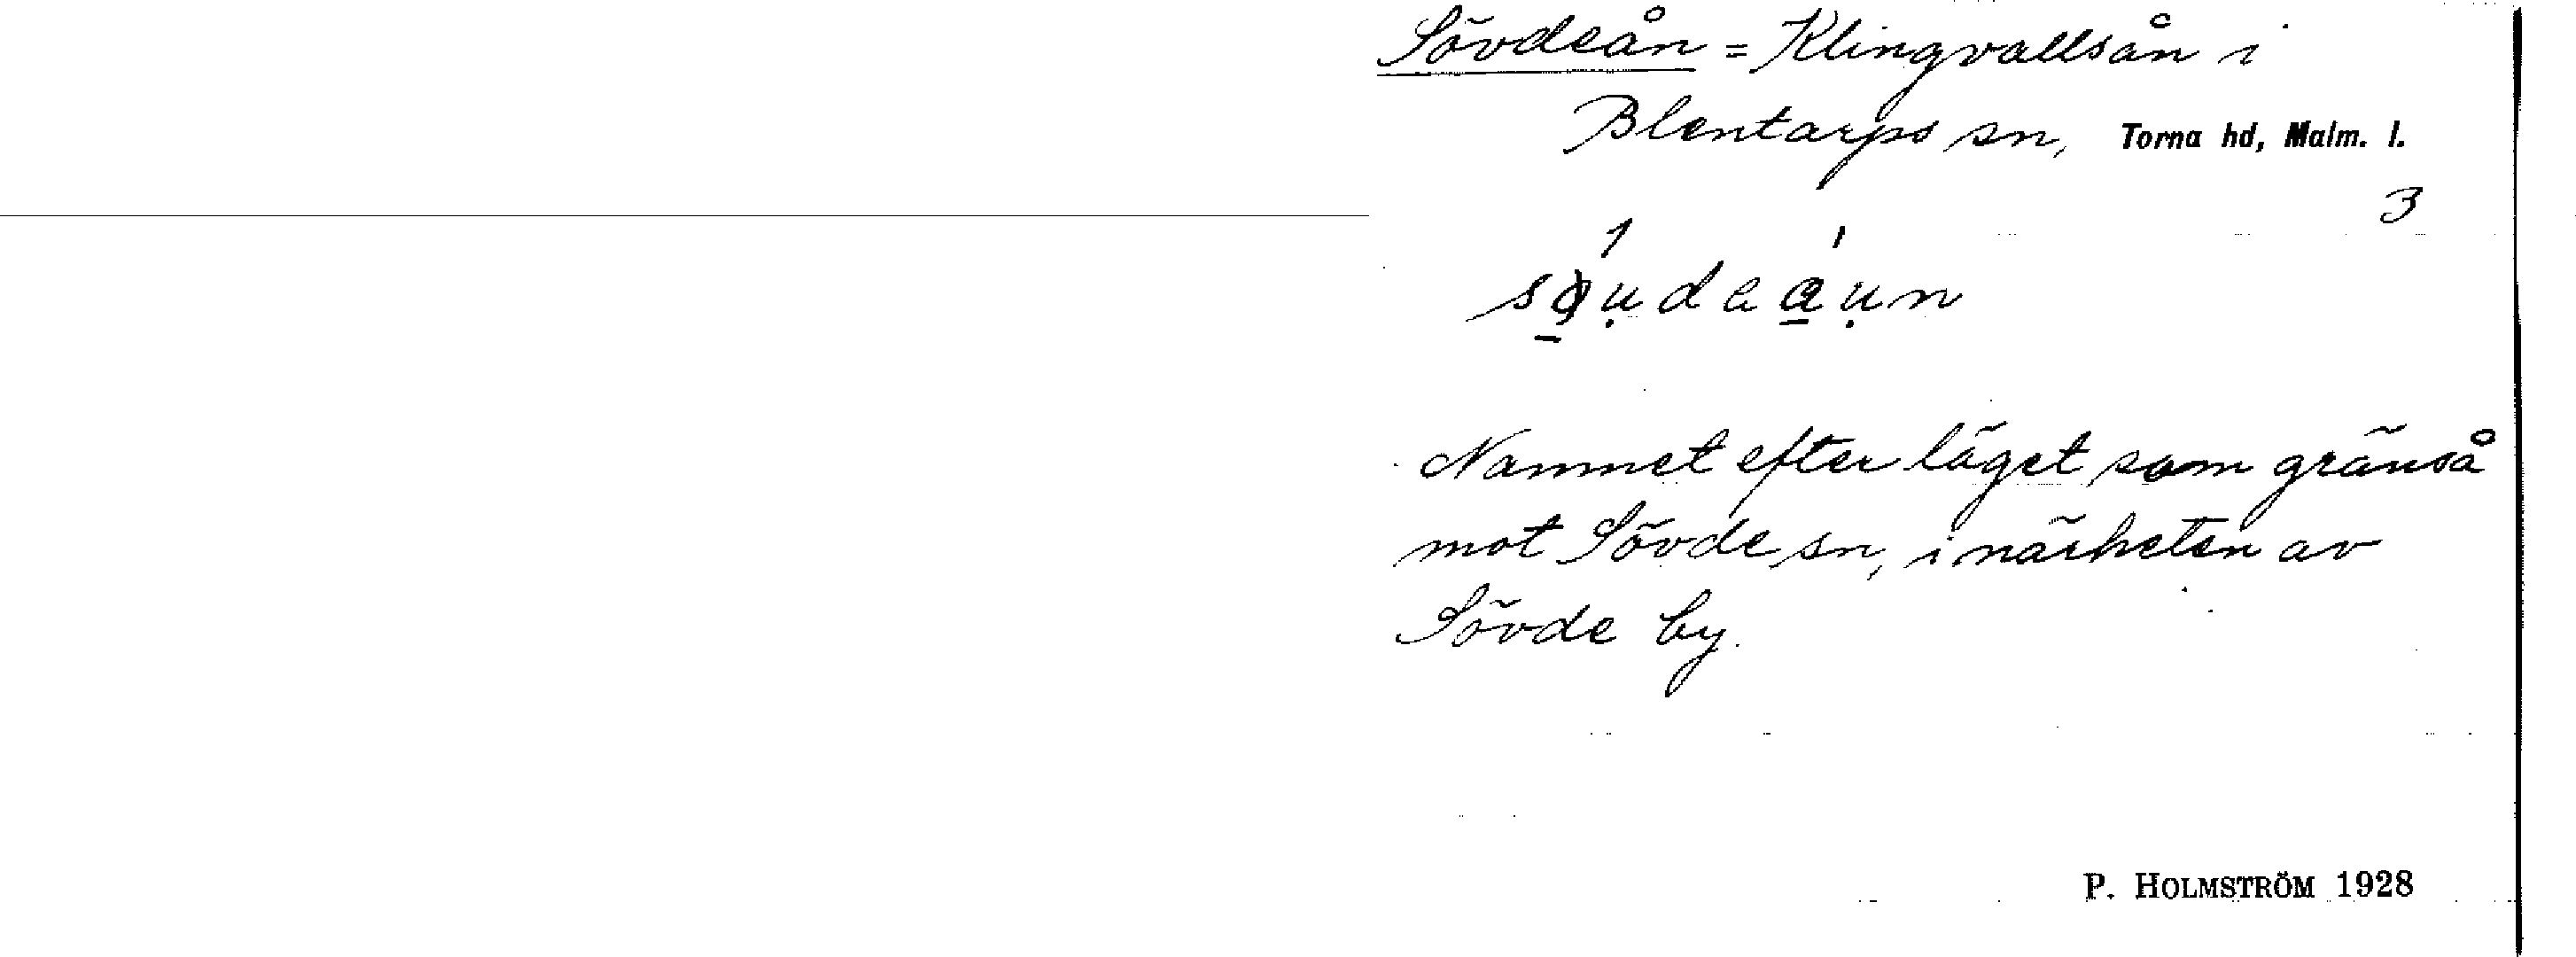 Sövdeån = Klingvallsån i
Blentarps sn, Torna hd, Malm. l.
3
Namnet efter läget som gränså
mot Sövde sn, i närheten av
Sövde by.
P. HOLMSTRÖM 1928